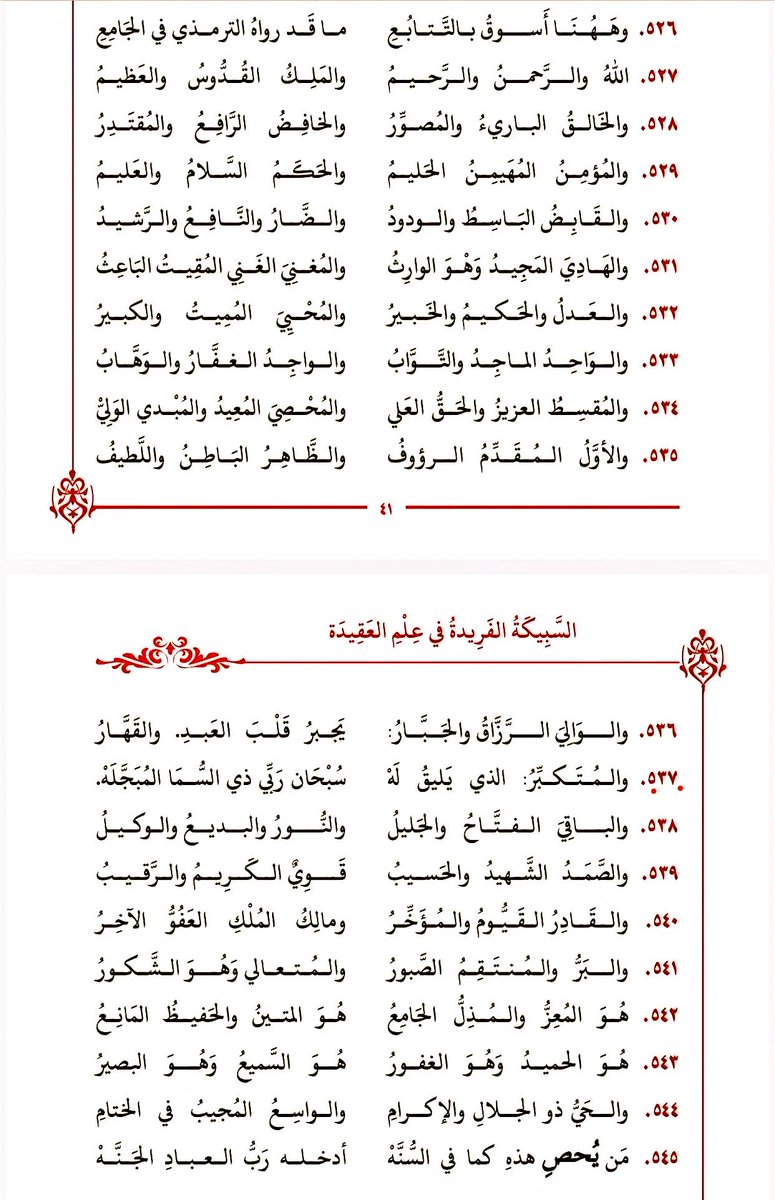 ٥٢٦. وهَهُنَا أَسوقُ بالتَّتابُعِ ما قَد رواهُ الترمذي في الجَامِعِ
٥٢٧. اللهُ والرَّحمنُ والرَّحيمُ والمَلِكُ القُدُّوسُ والعَظيمُ
٥٢٨. والخَالقُ الباريءُ والمُصوِّرُ والخافِضُ الرَّافِعُ والمُقتَدِرُ
٥٢٩. والمُؤمِنُ المُهَيمِنُ الحَليمُ والحَكَمُ السَّلامُ والعَليمُ
٥٣٠. والقَابِضُ البَاسِطُ والودودُ والضَّارُ والنَّافِعُ والرَّشيدُ
٥٣١. والهَادِيَ المَجِيدُ وَهْوَ الوارِثُ والمُغنِيَ الغَنِي المُقِيتُ البَاعِثُ
٥٣٢. والعَدلُ والحَكيمُ والخَبيرُ والمُحْيِيَ المُمِيتُ والكبيرُ
٥٣٣. والوَاحِدُ الماجِدُ والتَّوَّابُ والواجِدُ الغفَّارُ والوَهَّابُ
٥٣٤. والمُقسِطُ العزيزُ والحَقُّ العَلي والمُحْصِيَ المُعِيدُ والمُبْدي الوَلِيْ
٥٣٥. والأوَّلُ المُقَدِّمُ الرؤوفُ والظَّاهِرُ البَاطِنُ واللَّطيفُ
٤١
السَّبِيكَةُ الفَرِيدةُ في عِلْمِ العَقِيدَة
٥٣٦. والوَالِيَ الرَّزَّاقُ والجَبَّارُ: يَجبرُ قَلْبَ العَبدِ. والقَهَّارُ
٥٣٧. والمُتَكبِّرُ: الذي يَليقُ لَهْ سُبْحَان رَبِّي ذي السُّمَا المُبَجَّلَهْ.
٥٣٨. والباقِيَ الفتَّاحُ والجَليلُ والنُّورُ والبديعُ والوكيلُ
٥٣٩. والصَّمَدُ الشَّهيدُ والحَسيبُ قَوِيٌ الكَرِيمُ والرَّقيبُ
٥٤٠. والقَادِرُ القَيُّومُ والمُؤَخِّرُ ومالِكُ المُلْكِ العَفُوُّ الآخِرُ
٥٤١. والبَرُّ والمُنتَقِمُ الصَّبورُ والمُتعالي وَهْوَ الشَّكورُ
٥٤٢. هُوَ المُعِزُّ والمُذِلُّ الجَامِعُ هُوَ المتينُ والحَفيظُ المَانِعُ
٥٤٣. هُوَ الحميدُ وَهْوَ الغفورُ هُوَ السَّميعُ وَهْوَ البصيرُ
٥٤٤. والحَيُّ ذو الجلالِ والإكرامِ والواسِعُ المُجيبُ في الختامِ
٥٤٥. مَن يُحصِ هذهِ كما في السُّنَّهْ أدخله رَبُّ العبادِ الجَنَّهْ